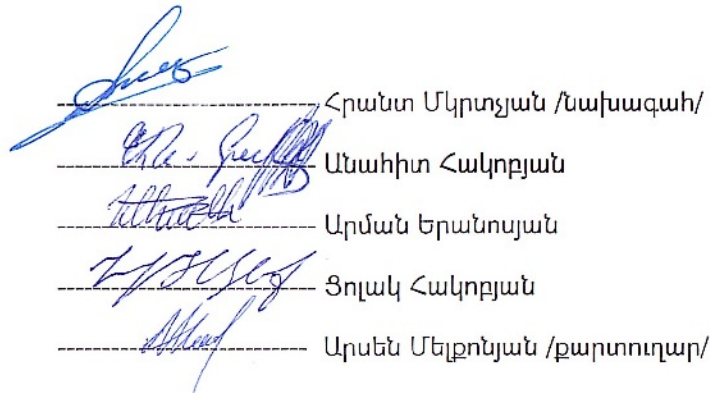 Հրանտ Մկրտչյան /նախագահ/
Անահիտ Հակոբյան
Արման Երանոսյան
Ցոլակ Հակոբյան
Արսեն Մելքոնյան /քարտուղար/